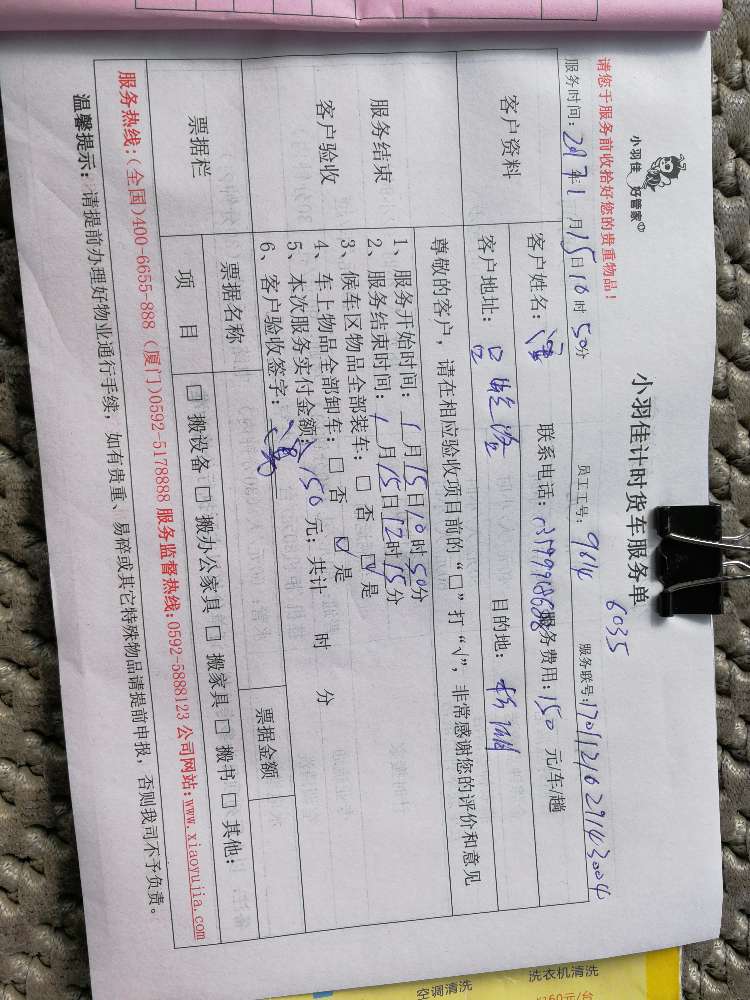 小羽佳 好管家
小羽佳计时货车服务单
6035
请您于服务前收拾好您的贵重物品！
服务时间：2017年1月15日10时50分 员工工号：9614 服务联号：
客户资料
客户姓名： 联系电话： 服务费用：150 元/车/趟
客户地址： 目的地：
服务结束
客户验收
尊敬的客户，请在相应验收项目前的“□”打“√”，非常感谢您的评价和意见
1、服务开始时间：1月15日10时50分
2、服务结束时间：1月15日12时15分
3、候车区物品全部装车：□ 否 ☑ 是
4、车上物品全部卸车：□ 否 ☑ 是
5、本次服务实付金额：150 元；共计 时 分
6、客户验收签字：
票据栏
票据名称 票据金额
项 目 □ 搬设备 □ 搬办公家具 □ 搬家具 □ 搬书 □ 其他：
服务热线：(全国)400-6655-888 (厦门)0592-5178888 服务监督热线：0592-5888123 公司网站：www.xiaoyujia.com
温馨提示：请提前办理好物业通行手续，如有贵重、易碎或其它特殊物品请提前申报，否则我司不予负责。
空调清洗
洗衣机清洗
160元/台